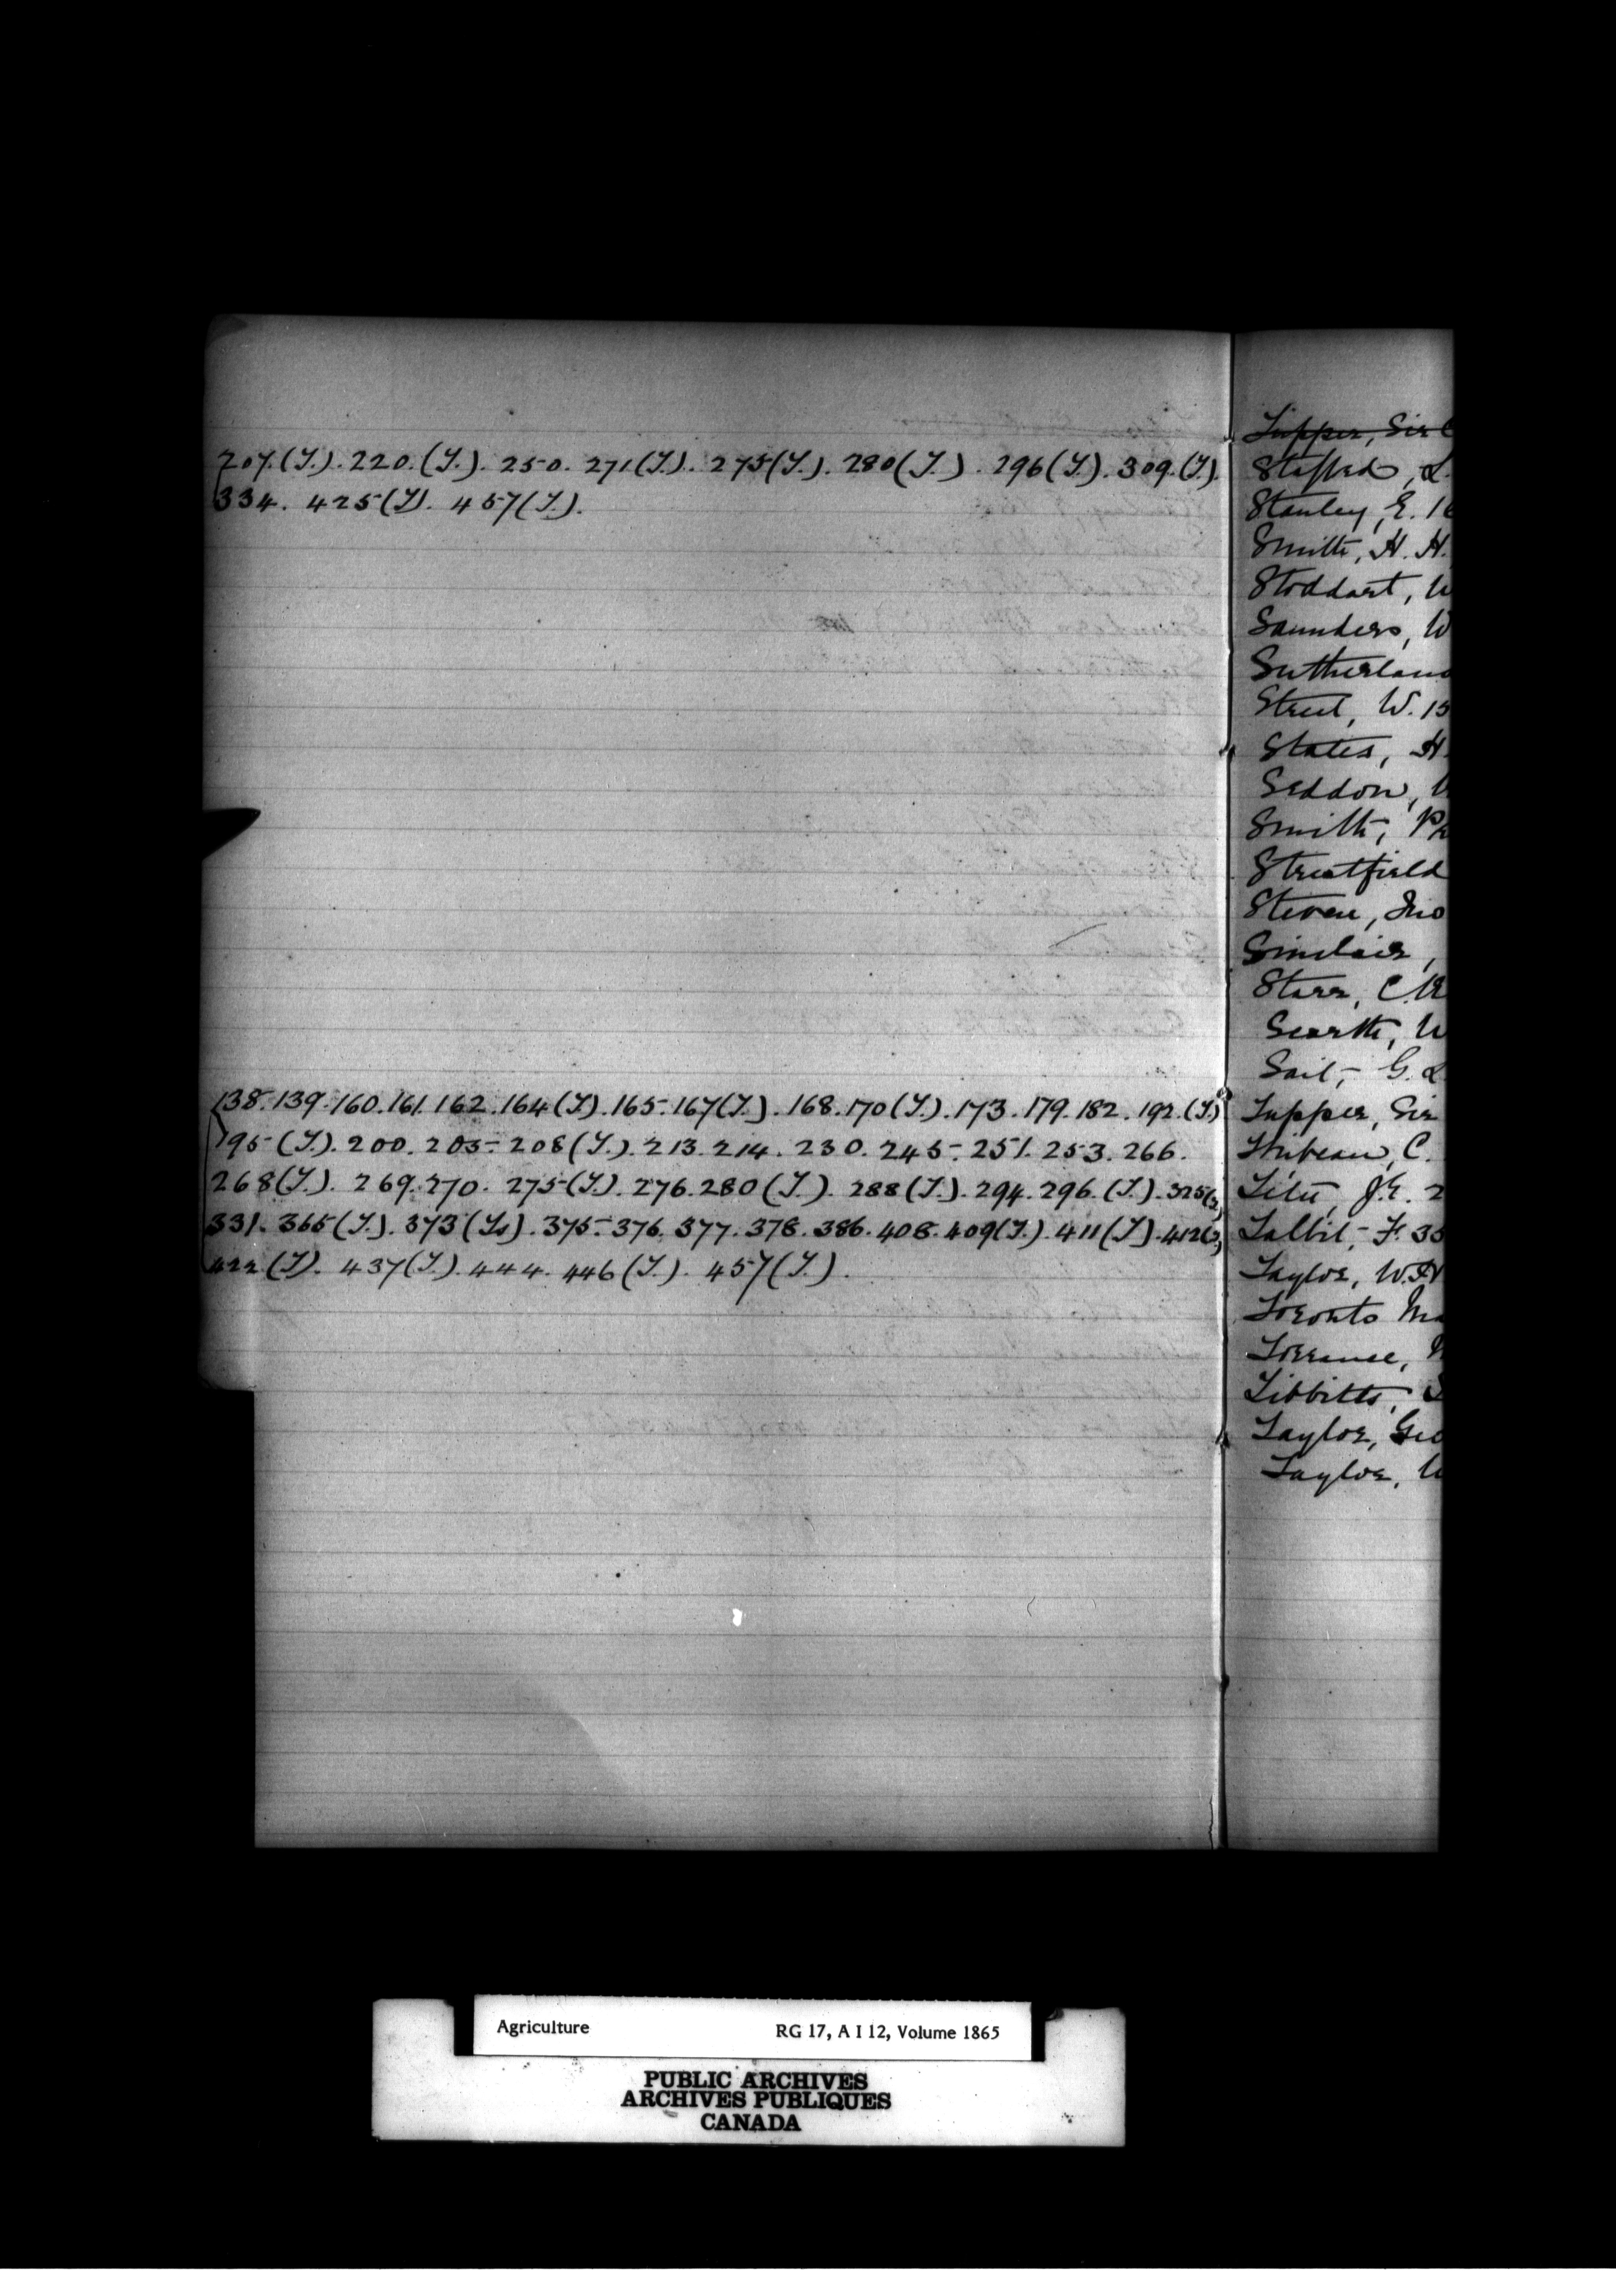 207.(T.). 220.(T.). 250. 271(T.). 275(T.). 280(T.). 296(T.). 309.(T.).
334. 425(T). 457(T.).
138. 139. 160. 161. 162. 164(T). 165. 167(T.). 168. 170(T.). 173. 179. 182. 192.(T.)
195(T.). 200. 205. 208(T.). 213. 214. 230. 245. 251. 253. 266.
268(T.). 269. 270. 275(T.). 276. 280(T.). 288(T.). 294. 296.(T.). 325
331. 365(T.). 373(Ts). 375. 376. 377. 378. 386. 408. 409(T.). 411(T). 412
422.(T). 437(T.). 444. 446(T.). 457(T.).
Tupper, Sir C
Stafford, L.
Stanley, E. 16
Smith, H. H.
Stoddart, W
Saunders, W
Sutherland
Street, W. 15
States, H.
Seddon,
Smith, Pr
Streatfield
Steven, Jno
Sinclair,
Starr, C. R
Scarth, W
Sait, G. L
Tupper, Sir
C.
Tétu, J. E. 2
Talbit, F. 35
Taylor, W. H
Toronto Ma
Torrance,
Tibbitts,
Taylor, Geo
Taylor, W
Agriculture RG 17, A I 12, Volume 1865
PUBLIC ARCHIVES
ARCHIVES PUBLIQUES
CANADA